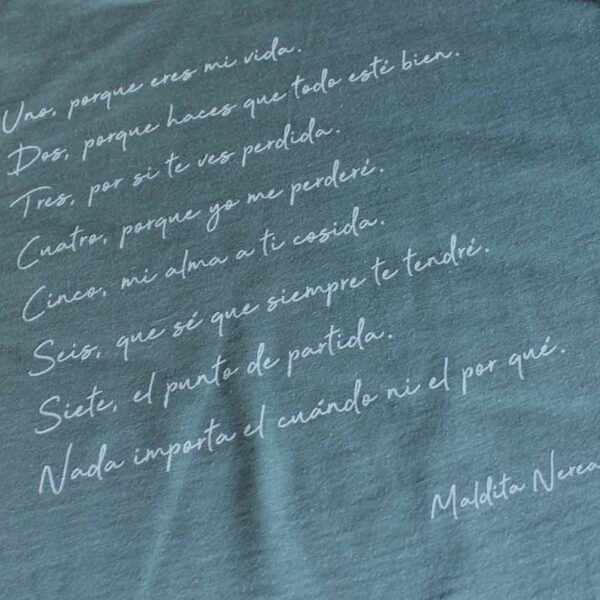 Uno, porque eres mi vida.
Dos, porque haces que todo esté bien.
Tres, por si te ves perdida.
Cuatro, porque yo me perderé.
Cinco, mi alma a ti cosida.
Seis, que sé que siempre te tendré.
Siete, el punto de partida.
Nada importa el cuándo ni el por qué.
Maldita Nerea